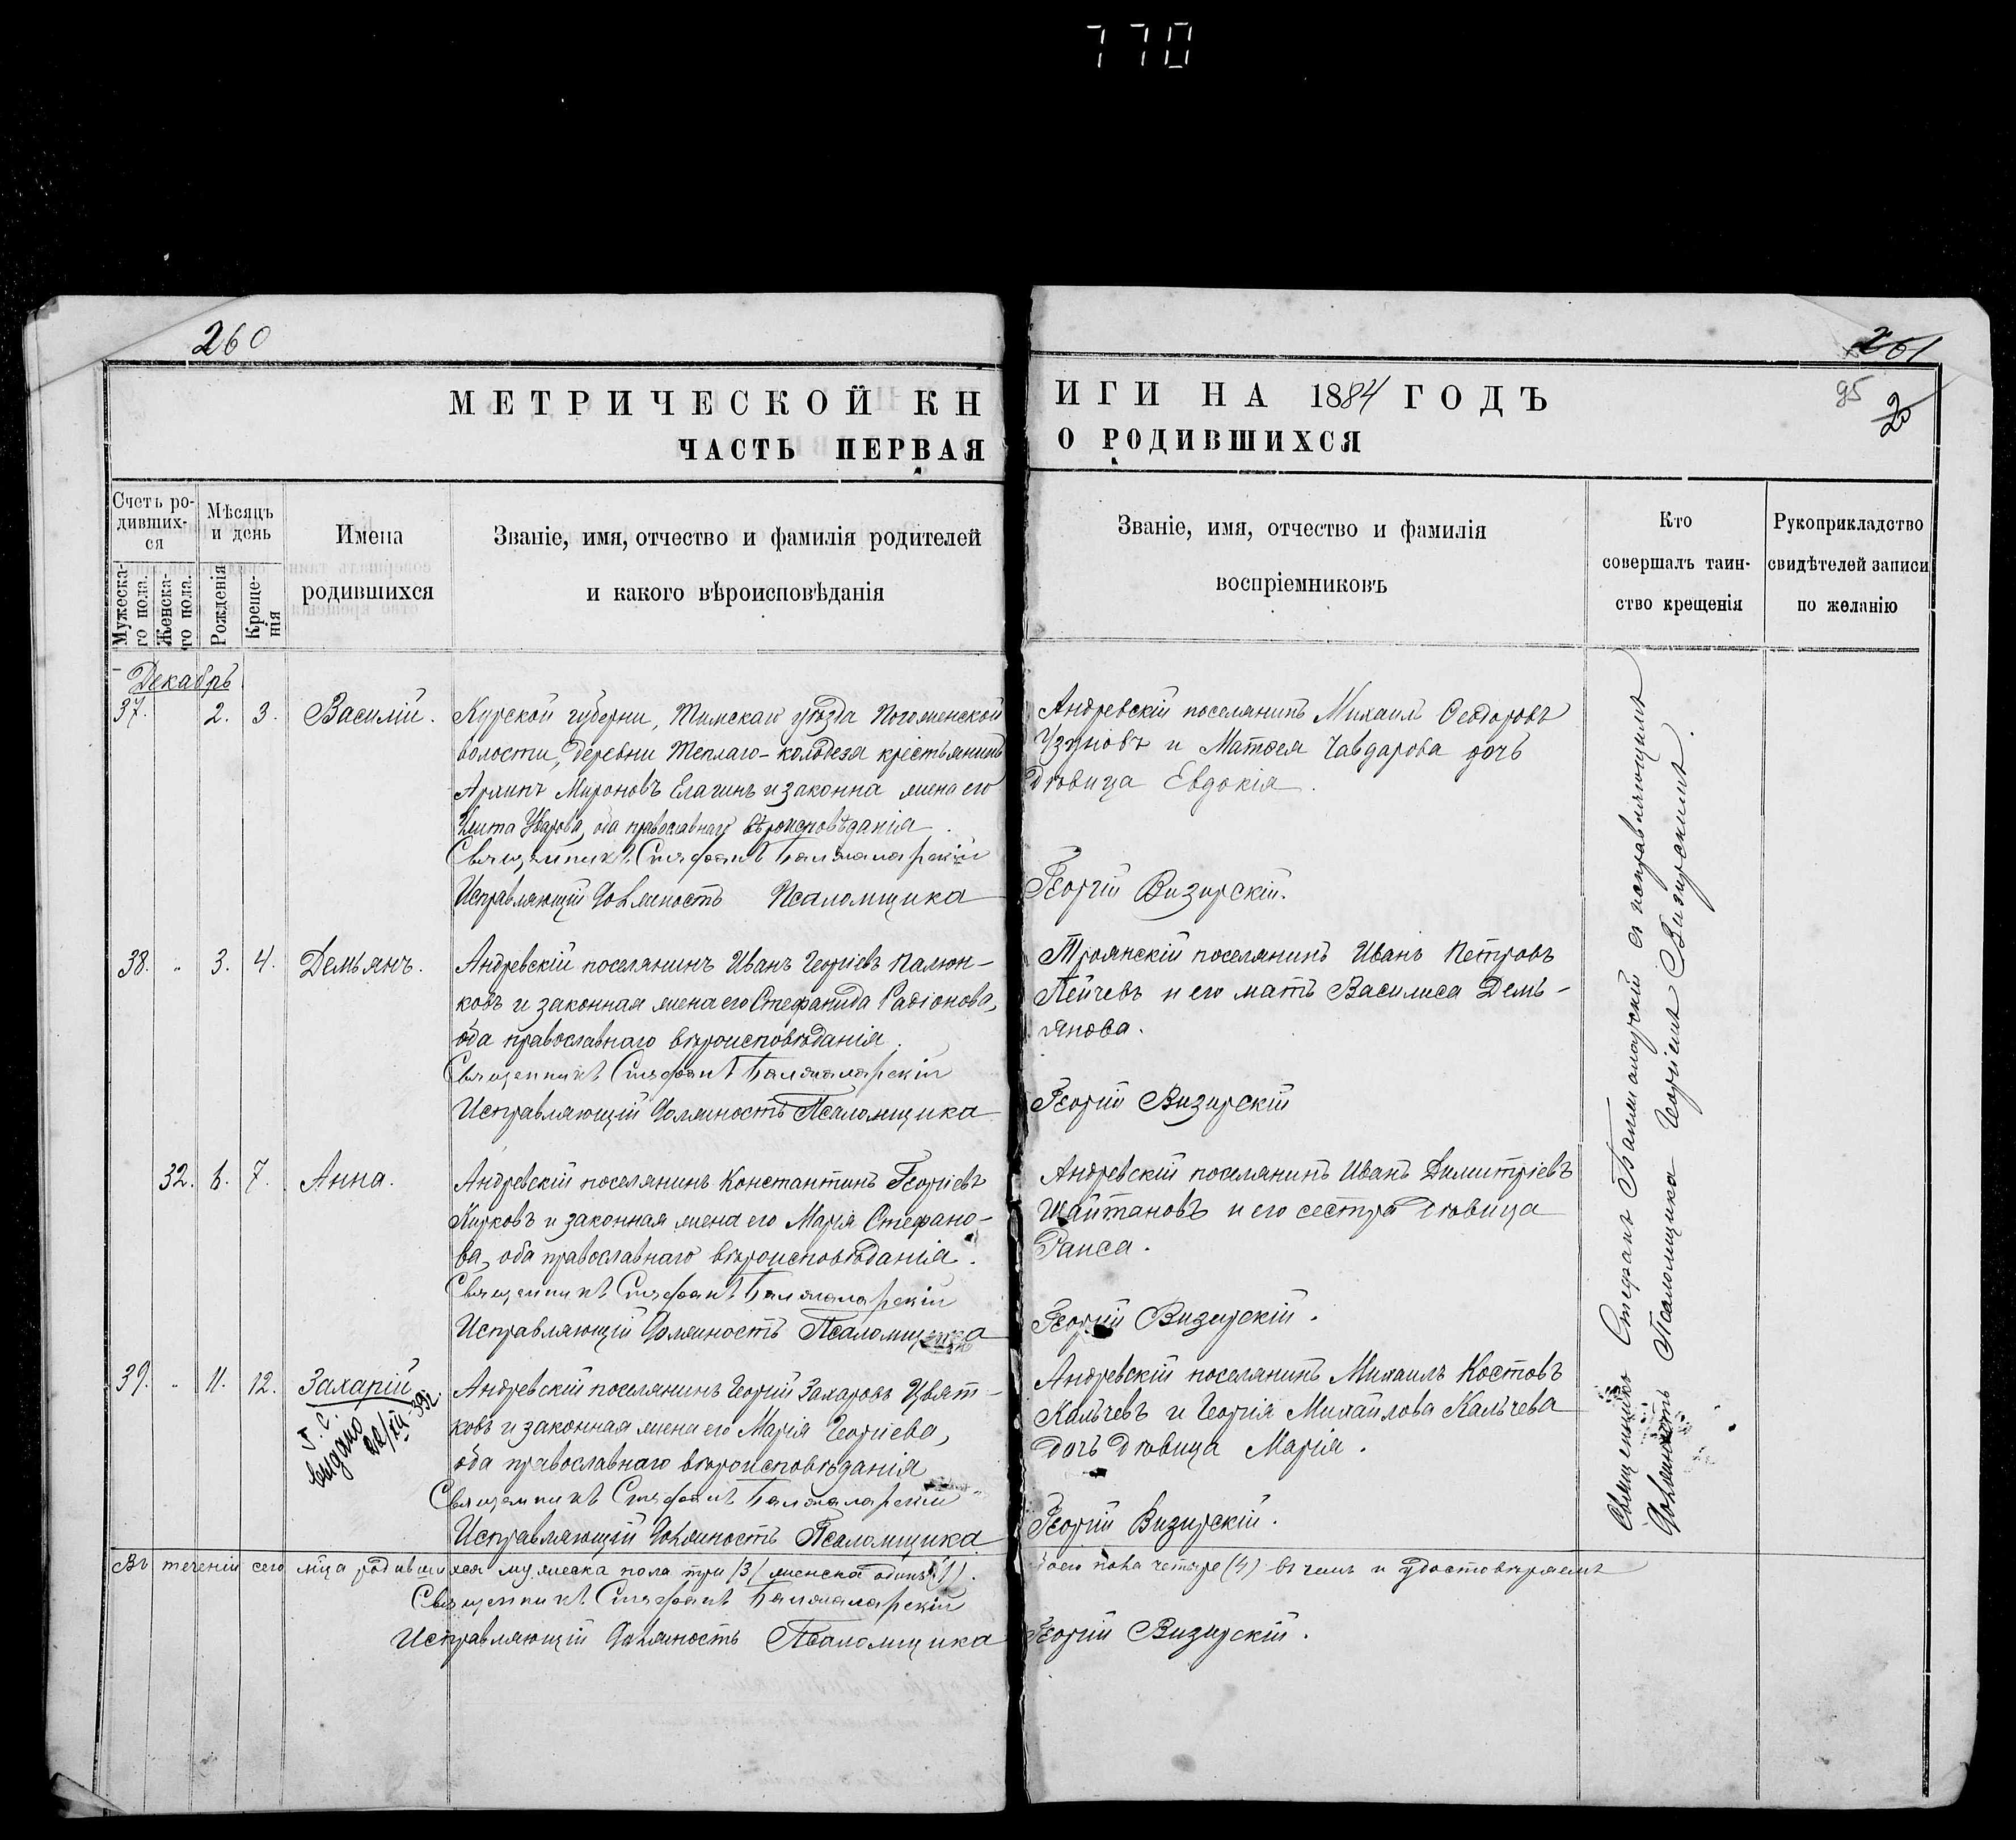 770
260
261
95
20
МЕТРИЧЕСКОЙ КН
ИГИ НА 1884 ГОДЪ
ЧАСТЬ ПЕРВАЯ
О РОДИВШИХСЯ
Счетъ ро-
дивших-
ся
Мужеска-
го пола.
Женска-
го пола.
Мѣсяцъ
и день
Рожденія
Креще-
нія
Имена
родившихся
Званіе, имя, отчество и фамилія родителей
и какого вѣроисповѣданія
Званіе, имя, отчество и фамилія
воспріемниковъ
Кто
совершалъ таин-
ство крещенія
Рукоприкладство
свидѣтелей записи
по желанію
Декабрь
37. 2. 3. Василій.
Курской губерни, Тимскаго уѣзда
волости, деревни Теплаго-колодеза крестьянинъ
Мироновъ Елагинъ и законна жена его
Уварова, оба православнаго вѣроисповѣданія
Священникъ Стефанъ
Исправляющій должность Псаломщика
Андревскій поселянинъ Михаилъ Ѳеодоровъ
Узуновъ и Матѳея Чавдарова дочь
дѣвица Евдокія.
Георгій Визирскій.
38. " 3. 4. Демьянъ.
Андревскій поселянинъ Иванъ Георгіевъ Палюн-
ковъ и законная жена его Стефанида Радіонова,
оба православнаго вѣроисповѣданія.
Священникъ Стефанъ
Исправляющій должность Псаломщика
Троянскій поселянинъ Иванъ Петровъ
Пейчевъ и его мать Василиса Демь-
янова.
Георгій Визирскій
32. 6. 7. Анна.
Андревскій поселянинъ Константинъ Георгіевъ
Кирковъ и законная жена его Марія Стефано-
ва, оба православнаго вѣроисповѣданія.
Священникъ Стефанъ
Исправляющій должность Псаломщика
Андревскій поселянинъ Иванъ Димитріевъ
Шайтановъ и его сестра дѣвица
Раиса.
Георгій Визирскій.
39. " 11. 12. Захарій
выдано
22/III 39г.
Андревскій поселянинъ Георгій Захаровъ Цвят-
ковъ и законная жена его Марія Георгіева,
оба православнаго вѣроисповѣданія
Священникъ Стефанъ
Исправляющій должность Псаломщика
Андревскій поселянинъ Михаилъ Костовъ
Кальчевъ и Георгія Михайлова Кальчева
дочь дѣвица Марія.
Георгій Визирскій.
Въ теченіи сего мца родившихся мужеска пола три (3) женска одинъ (1).
обоего пола четыре (4) въ чемъ и удостовѣряемъ
Священникъ Стефанъ
Исправляющій должность Псаломщика
Георгій Визирскій.
Священникъ Стефанъ съ исправляющимъ
должность Псаломщика Георгіемъ Визирскимъ.